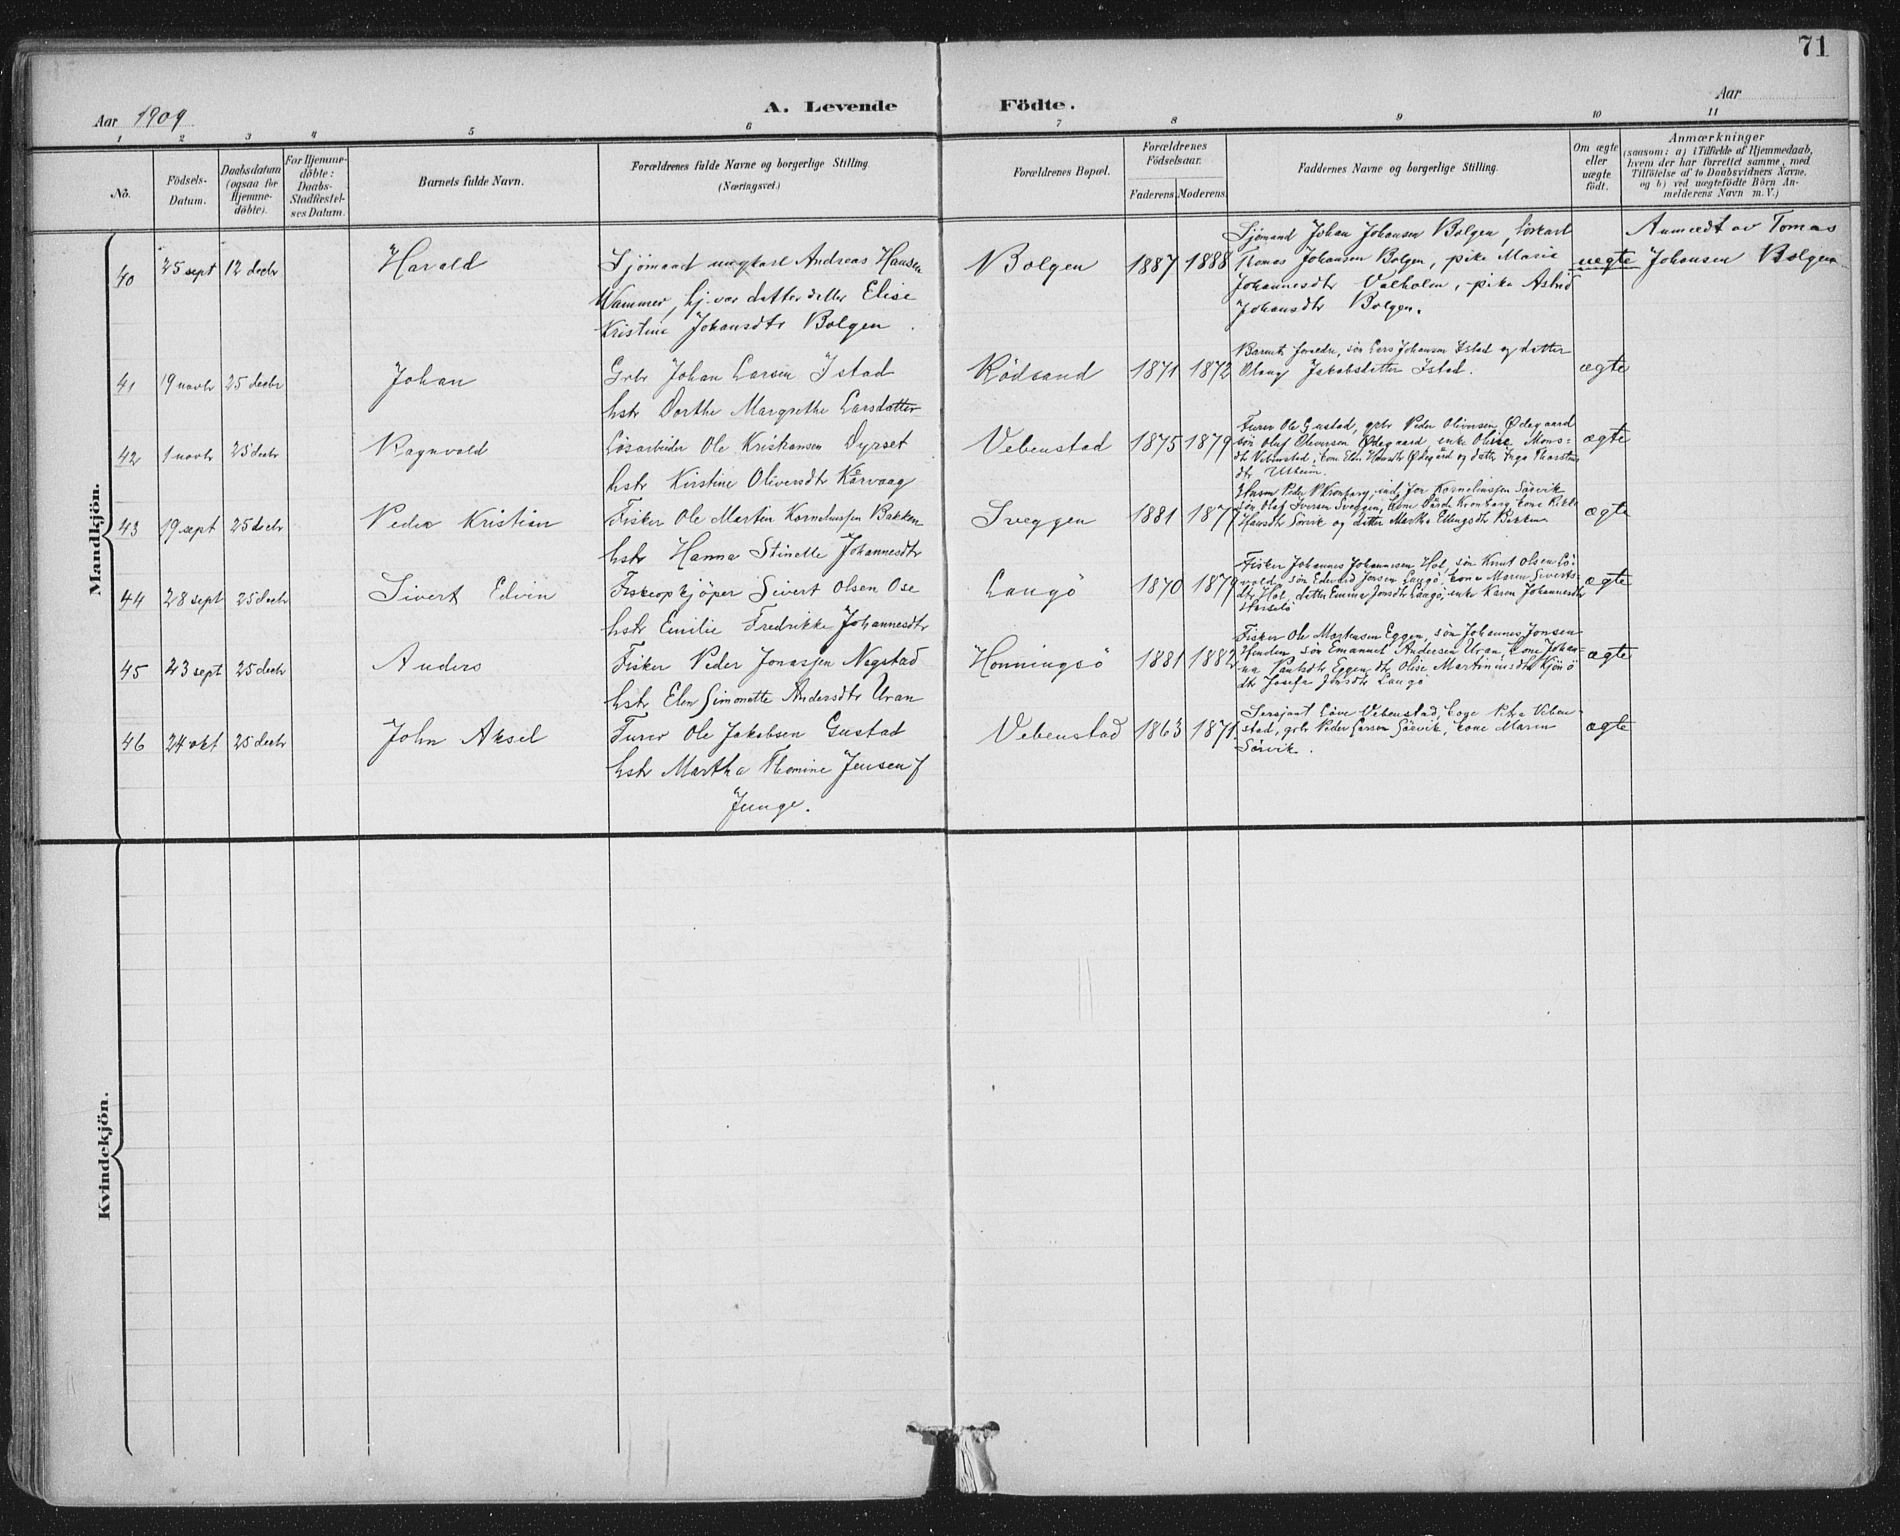 71
Aar 1909
A. Levende Födte.
Aar
1 2 3 4 5 6 7 8 9 10 11
No.
Födsels-Datum.
Daabsdatum (ogsaa for Hjemme-döbte).
For Hjemme-döbte: Daabs-Stadfæstel-ses Datum.
Barnets fulde Navn.
Forældrenes fulde Navne og borgerlige Stilling (Næringsvei.)
Forældrenes Bopæl.
Forældrenes Födselsaar.
Faderens Moderens
Faddernes Navne og borgerlige Stilling.
Om ægte eller uægte födt.
Anmærkninger
(saasom: a) i Tilfælde af Hjemmedaab,
hvem der har forrettet samme, med
Tilföielse af to Daabsvidners Navne,
og b) ved uægtefödte Börn An-
melderens Navn m. V.)
Mandkjön.
40 25 sept 12 decbr Harald
Sjömand ungkarl Andreas Hansen
Wammer, hj. vær. datter Elise
Kristine Johansdtr Bolgen.
Bolgen 1887 1888
Sjömand Johan Johansen Bolgen,
Tomas Johansen Bolgen, pike Marie
Johannesdtr Valholm, pike Astrid
Johansdtr Bolgen.
uegte
Anmeldt av Tomas
Johansen Bolgen
41 19 novbr 25 decbr Johan
Grbr Johan Larsen Istad
hstr Dorthe Margrethe Larsdatter
Rödsand 1871 1872
Barnets forældre, sön Lars Johansen Istad og datter
Olaug Jakobsdatter Istad.
ægte
42 1 novbr 25 decbr Ragnvald
Lösarbeider Ole Kristiansen Dyrset
hstr Kirstine Oliversdtr Kårvaag
Vebenstad 1875 1879
Furer Ole Gustad, grbr Peder Oliversen Ødegaard
sön Oluf Oliversen Ødegaard, enke Oline Mons-
dtr Vebenstad, kone Elen Hansdtr Ødegård og datter Inga Thorstens
dtr Utheim.
ægte
43 19 sept 25 decbr Peder Kristian
Fisker Ole Martin Korneliussen Bakken
hstr Hanna Stinette Johannesdtr
Sveggen 1881 1877
Husm Peder P Kronborg, ind. Jor Korneliussen Sörvik
sön Olaf Iversen Sveggen, kone Bårde Kronborg, kone Rikke
Hansdtr Sörvik og datter Martha Ellingsdtr Bakken
ægte
44 28 sept 25 decbr Sivert Edvin
Fiskeopkjöper Sivert Olsen Ose
hstr Emilie Fredrikke Johannesdtr
Langö 1870 1879
Fisker Johannes Johannesen Hol, sön Knut Olsen Lö-
vold, sön Edvard Jonsen Langö, kone Maren Siverts-
dtr Hol, datter Emma Jonsdtr Langö, enke Karen Johannesdtr
ægte
45 23 sept 25 decbr Anders
Fisker Peder Jonassen Negstad
hstr Elen Simonette Andersdtr Uran
Honningsö 1881 1882
Fisker Ole Mortensen Eggen, sön Johannes Jonsen
Henden sön Emanuel Andersen Uran, kone Johan-
na Paulsdtr Eggen dtr Olise Martinusdtr Kjönö
dtr Josefa Jonsdtr Langö
ægte
46 24 okt 25 decbr John Aksel
Furer Ole Jakobsen Gustad
hstr Martha Thomine Jensen f
Junge.
Vebenstad 1863 1871
Sersjant Löve Vebenstad, kone Petra Veben-
stad, grbr Peder Larsen Sörvik, kone Maren
Sörvik.
ægte
Kvindekjön.